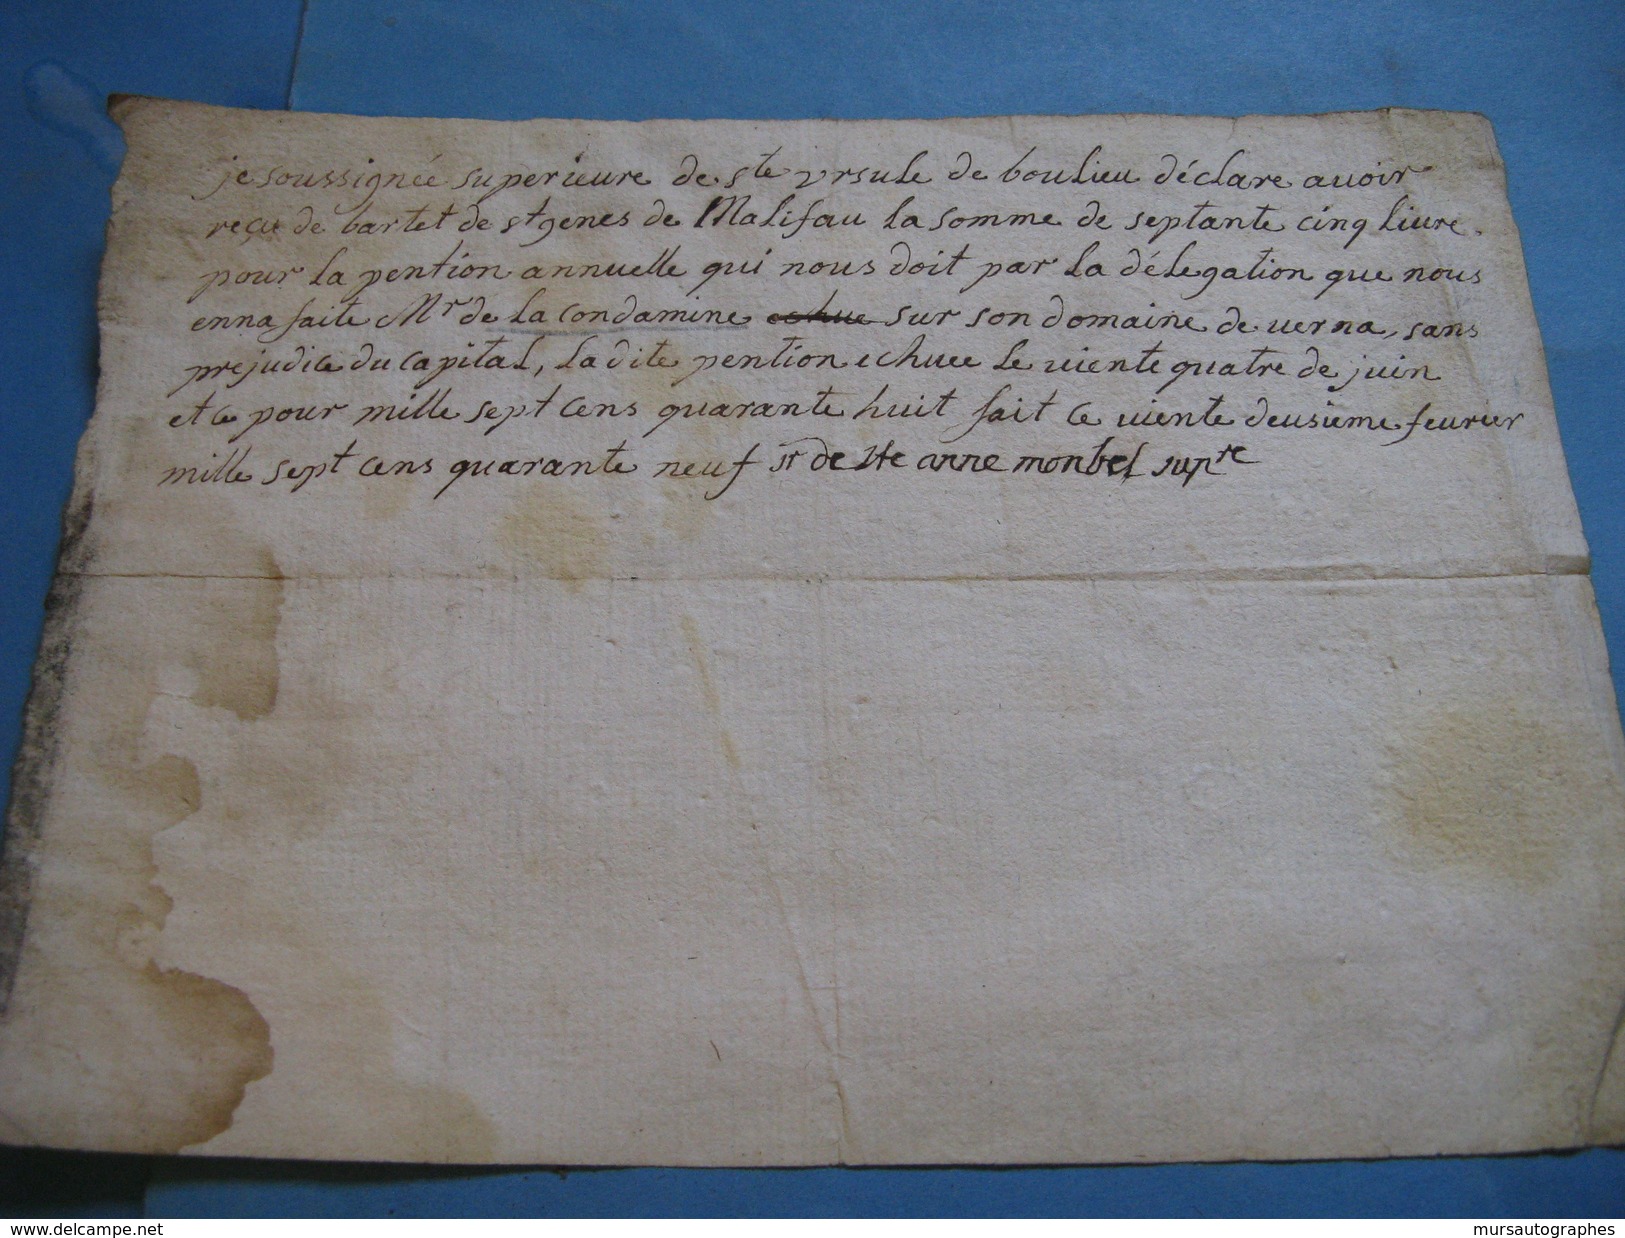 je soussignée superieure de ste ursule de boulieu déclare auoir
reçu de bartet de st genes de Malifau la somme de septante cinq liure.
pour la pention annuelle qui nous doit par la délegation que nous
enna faite Mr de la condamine echue sur son domaine de uerna, sans
prejudice du capital, ladite pention echuee le uiente quatre de juin
et ce pour mille sept cens quarante huit fait ce uiente deusieme feurier
mille sept cens quarante neuf sr de ste anne monbel supre
www.delcampe.net
mursautographes